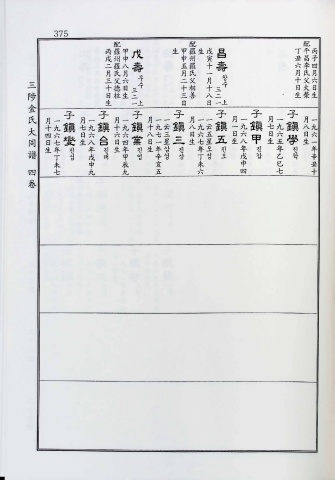 375
丙子四月六日生
配平昌李氏父火燮
丁丑六月十日生
昌壽 창수 三二二 上
戊寅十一月十八日
生
配羅州羅氏父相善
甲申五月二十三日
生
戊壽 무수 三二二 上
甲申八月六日生
配羅州羅氏父德柱
丙戌二月三十日生
一九六一年辛丑十
月八日生
子鎭學 진학
一九六五年乙巳七
月七日生
子鎭甲 진갑
一九六八年戊申四
月一日生
子鎭五 진오
一九六七年丁未六
月八日生
子鎭三 진삼
一九七一年辛亥五
月十八日生
子鎭業 진업
一九六四年甲辰九
月十六日生
子鎭台 진태
一九六八年戊申九
月十六日生
子鎭燮 진섭
一九六七年丁未七
月十四日生
三陟金氏大同譜 四卷